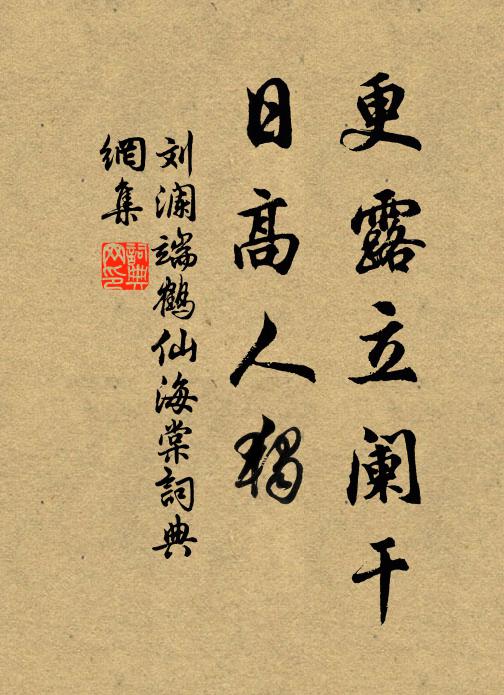 更露立阑干
日高人獨
刘澜端鹤仙海棠詞典
網集
詞典
网印